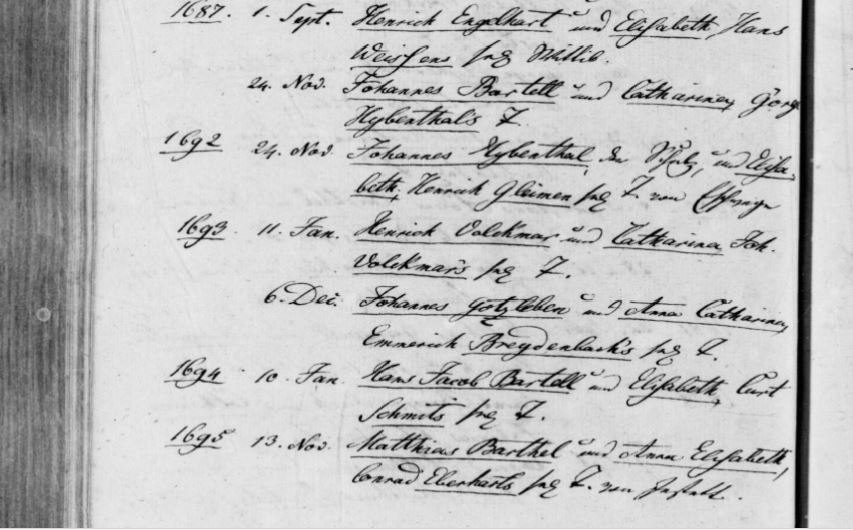 1687. 1. Sept. Henrich Engelhart und Elisabeth, Hans
Weissens sel. Wittib.
24. Nov. Johannes Bartell und Catharinen Görg
Hybenthals T.
1692 24. Nov. Johannes Hybenthal, und Elisa-
beth, Henrich Gleimen sel. T. von
1693. 11. Jan. Henrich Volckmar und Catharina Joh.
Volckmars sel. T.
6. Dec. Johannes Gotzleben und Anna Catharinen
Emmerich Breydenbach's sel. T.
1694 10. Jan. Hans Jacob Bartell und Elisabeth, Curt
Schmits sel. T.
1695 13. Nov. Matthias Barthel und Anna Elisabeth,
Conrad Eberharts sel. T. von